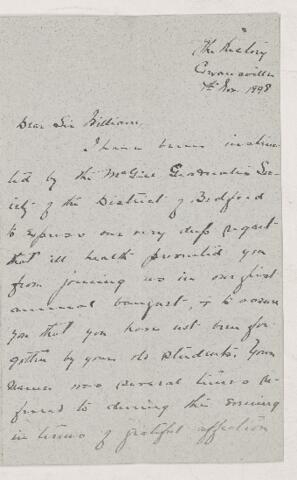 The Rectory
Cowansville
7th Nov. 1898
Dear Sir William,
I have been instruc-
ted by the McGill Graduates Soc-
iety of the District of Bedford
to express our very deep regret
that ill health prevented you
from joining us in our first
annual banquet, & to assure
you that you have not been for-
gotten by your old students. Your
name was several times re-
ferred to during the evening
in terms of grateful affection